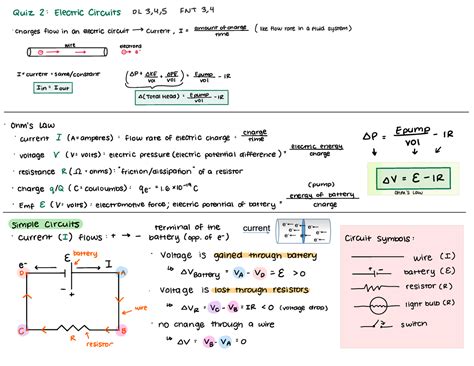 Quiz 2: Electric Circuits DL 3,4,5 FNT 3,4
· charges flow in an electric circuit → current, I = amount of charge / time (like flow rate in a fluid system)
wire electrons
I = current = same/constant
Iin = Iout
ΔP = ΔKE/vol + ΔPE/vol = Epump/vol - IR
Δ(Total Head) = Epump/vol - IR
· Ohm's Law
· current I (A = amperes) : flow rate of electric charge = charge/time
· voltage V (V = volts) : electric pressure (electric potential difference) = electric energy/charge
· resistance R (Ω = ohms) : "friction/dissipation" of a resistor
· charge q/Q (C = coulombs) : qe- = 1.6 × 10⁻¹⁹ C
(pump)
· Emf ℰ (V = volts) : electromotive force; electric potential of battery = energy of battery/charge
ΔP = Epump/vol - IR
ΔV = ℰ - IR
OHM'S LAW
Simple Circuits
· current (I) flows: + → - terminal of the battery (opp. of e⁻)
current
e⁻ e⁻ e⁻
ℰ battery
e⁻ I
D A
- +
wire
C B
R resistor
· Voltage is gained through battery
↳ ΔVBattery = VA - VD = ℰ > 0
· Voltage is lost through resistors
↳ ΔVR = VC - VB = IR < 0 (voltage drop)
· no change through a wire
↳ ΔV = VB - VA = 0
Circuit Symbols:
wire (I)
battery (ℰ)
resistor (R)
light bulb (R)
switch